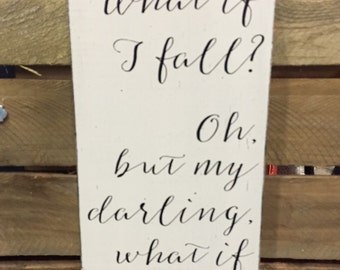 What if
I fall?
Oh,
but my
darling,
what if